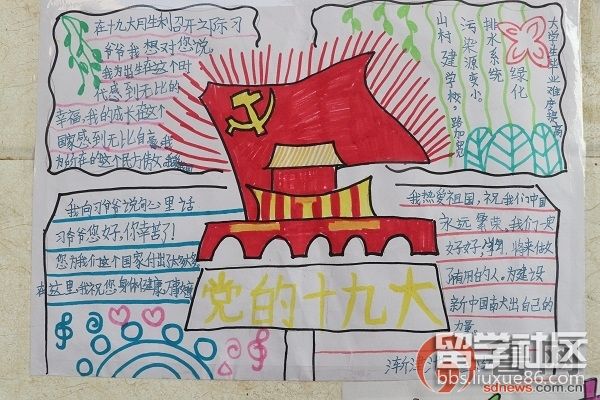 在十九大月生利召开之际习
爷爷我想对您说,
我为出生在这个时
代感到无比的
幸福,我的成长在这个
国家感到无比自豪,我
为所在的这个民方伟大
大学生毕业难度提高
绿化
排水系统
污染源变小。
山村建学校,路加宽
我向习爷爷说句心里话
习爷爷您好,你辛苦了!
您为我们这个国家付出
在这里,我祝您身体健康
我热爱祖国,祝我们中国
永远繁荣,我们一定
好好学,将来做
有用的人。为建设
新中国
出自己的
力量。
党的十九大
留学社区
bbs.liuxue86.com
sdnews.com.cn